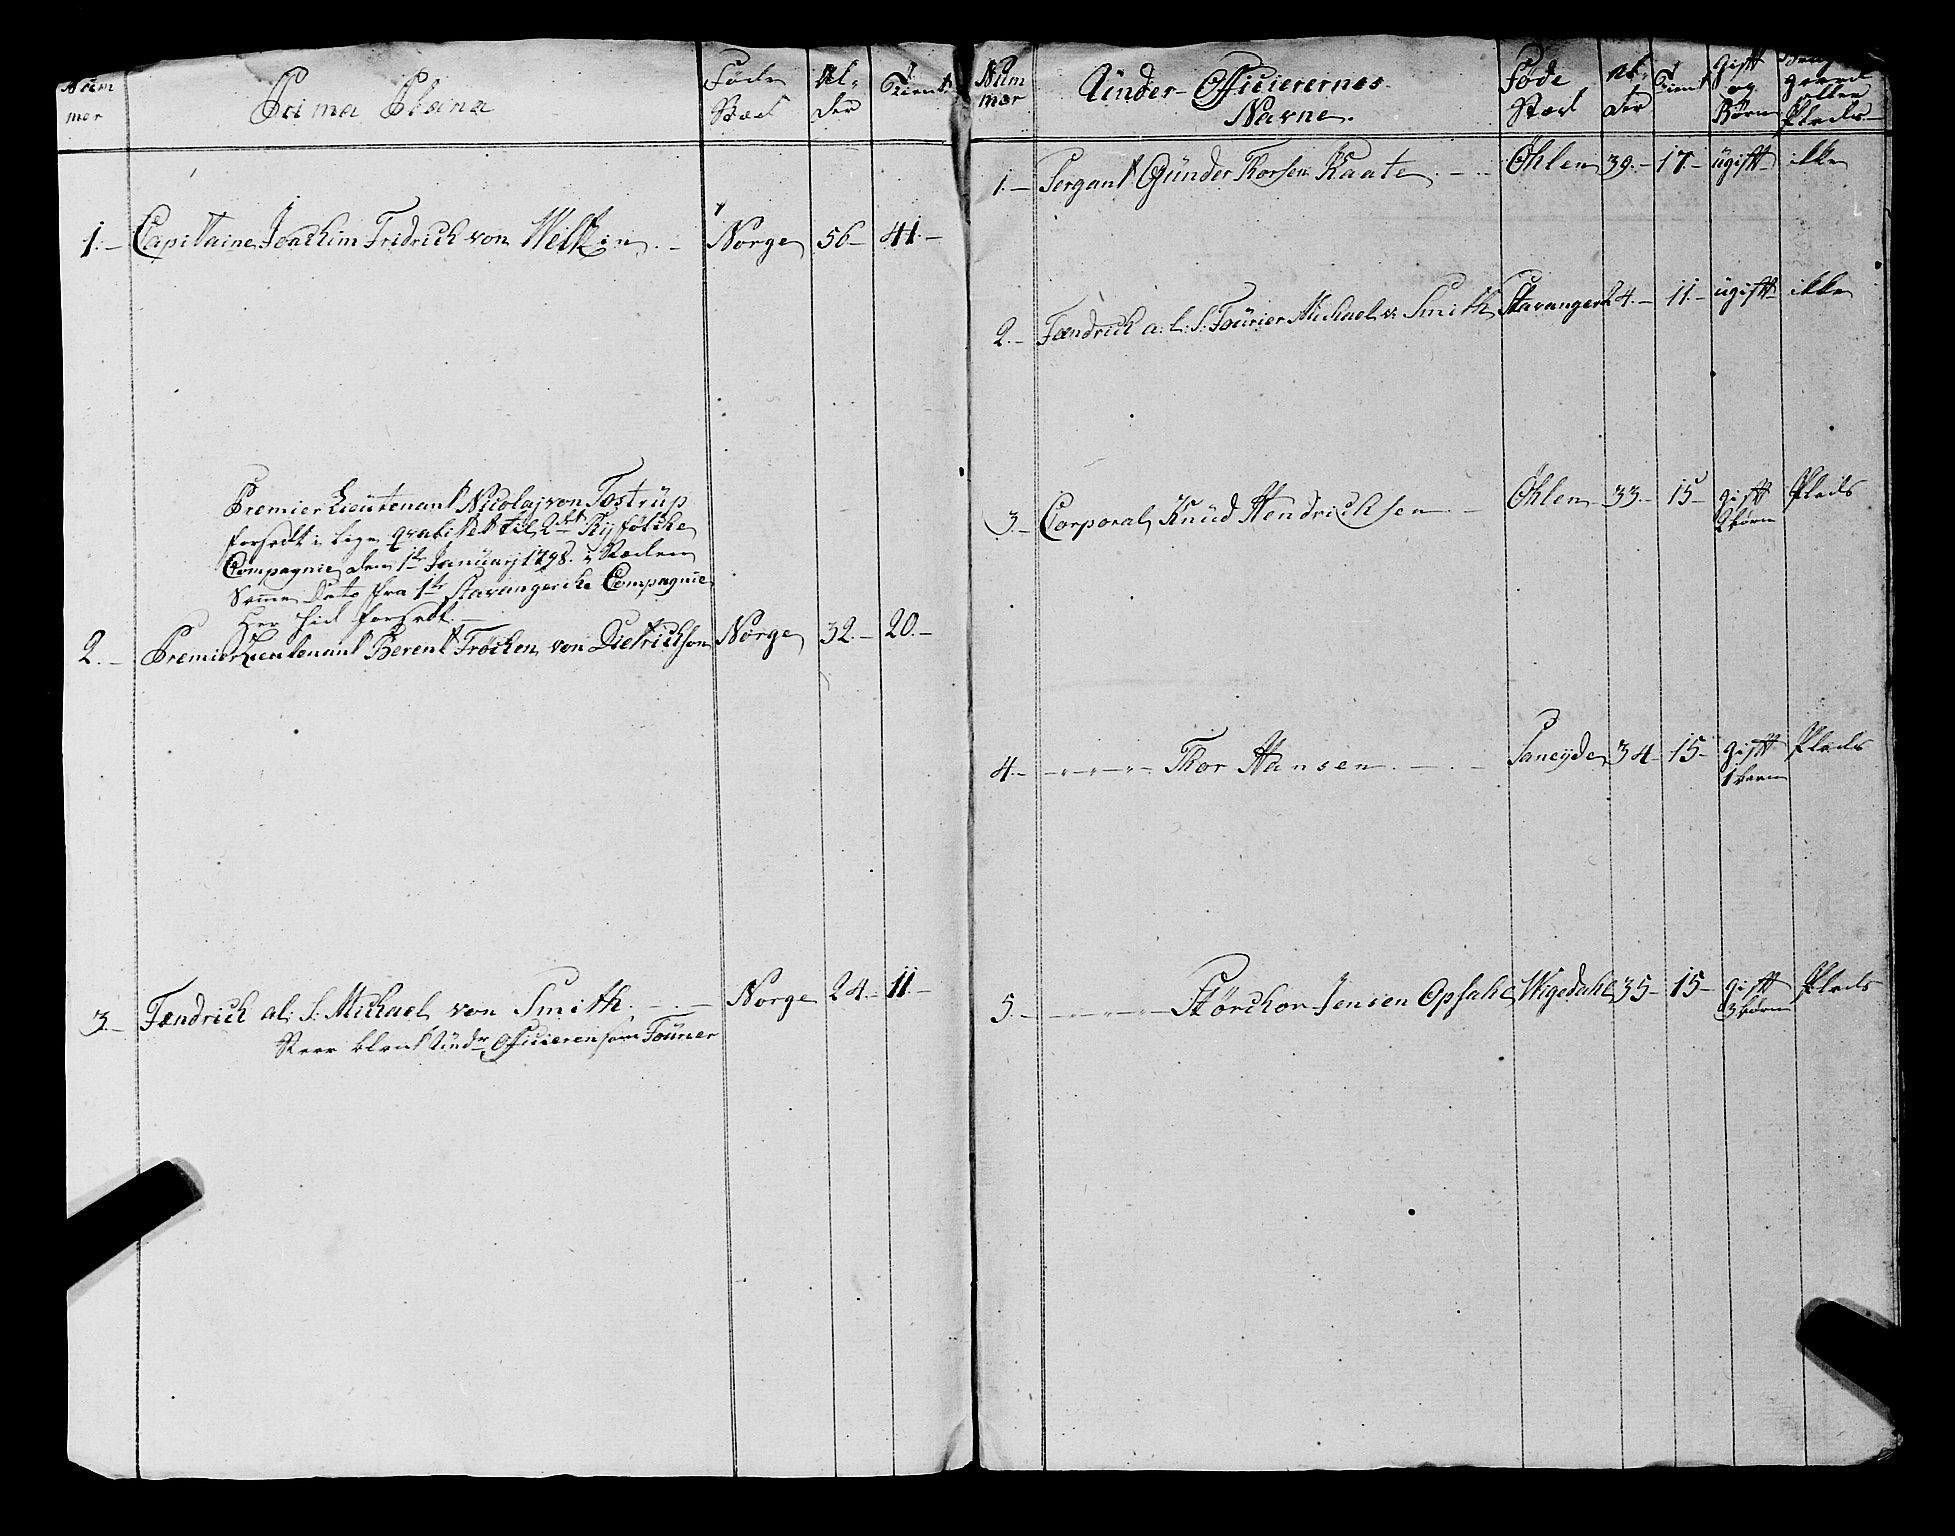 Num
mer
Prima Plana
Føde
Stæd
Al-
der
Tient
1.- Capitaine Joachim Fridrich von Welken Norge 56- 41.-
Premier Lieutenant Nicolaj von Tostrup
forsedt i lige qvalitet til 2det Ryfølcke
Compagnie den 1te Januarj 1798. i Stæden
Samme Dato fra 1te Stavangerske Compagnie
Her hid forsedt.
2.- Premier Lieutenant Berent Frölien von Dietrichson Norge 32.- 20.-
3.- Fændrich al: S: Michael von Smith. Norge 24.- 11-
Staar blant Undr Officieren som Fourier
Num
mer
Under-Officierernes
Navne.
Føde
Stæd
Al-
der
Tient
gift
og
Børn
gaard
eller
Plads
1.- Sergant Gunder Thorsen Kaate Øhlen 39.- 17- ugift ikke
2.- Fændrich a: l: S: Fourier Michael v: Smith Stavanger 24.- 11- ugift ikke
3.- Corporal Knud Hendrichsen Øhlen 33.- 15- gift Plads
2 børn
4.- Thor Hansen Saneyde 34- 15- gift Plads
1 barn
5.- Størchor Jensen Opsahl Wigedahl 35- 15- gift Plads
3 børn